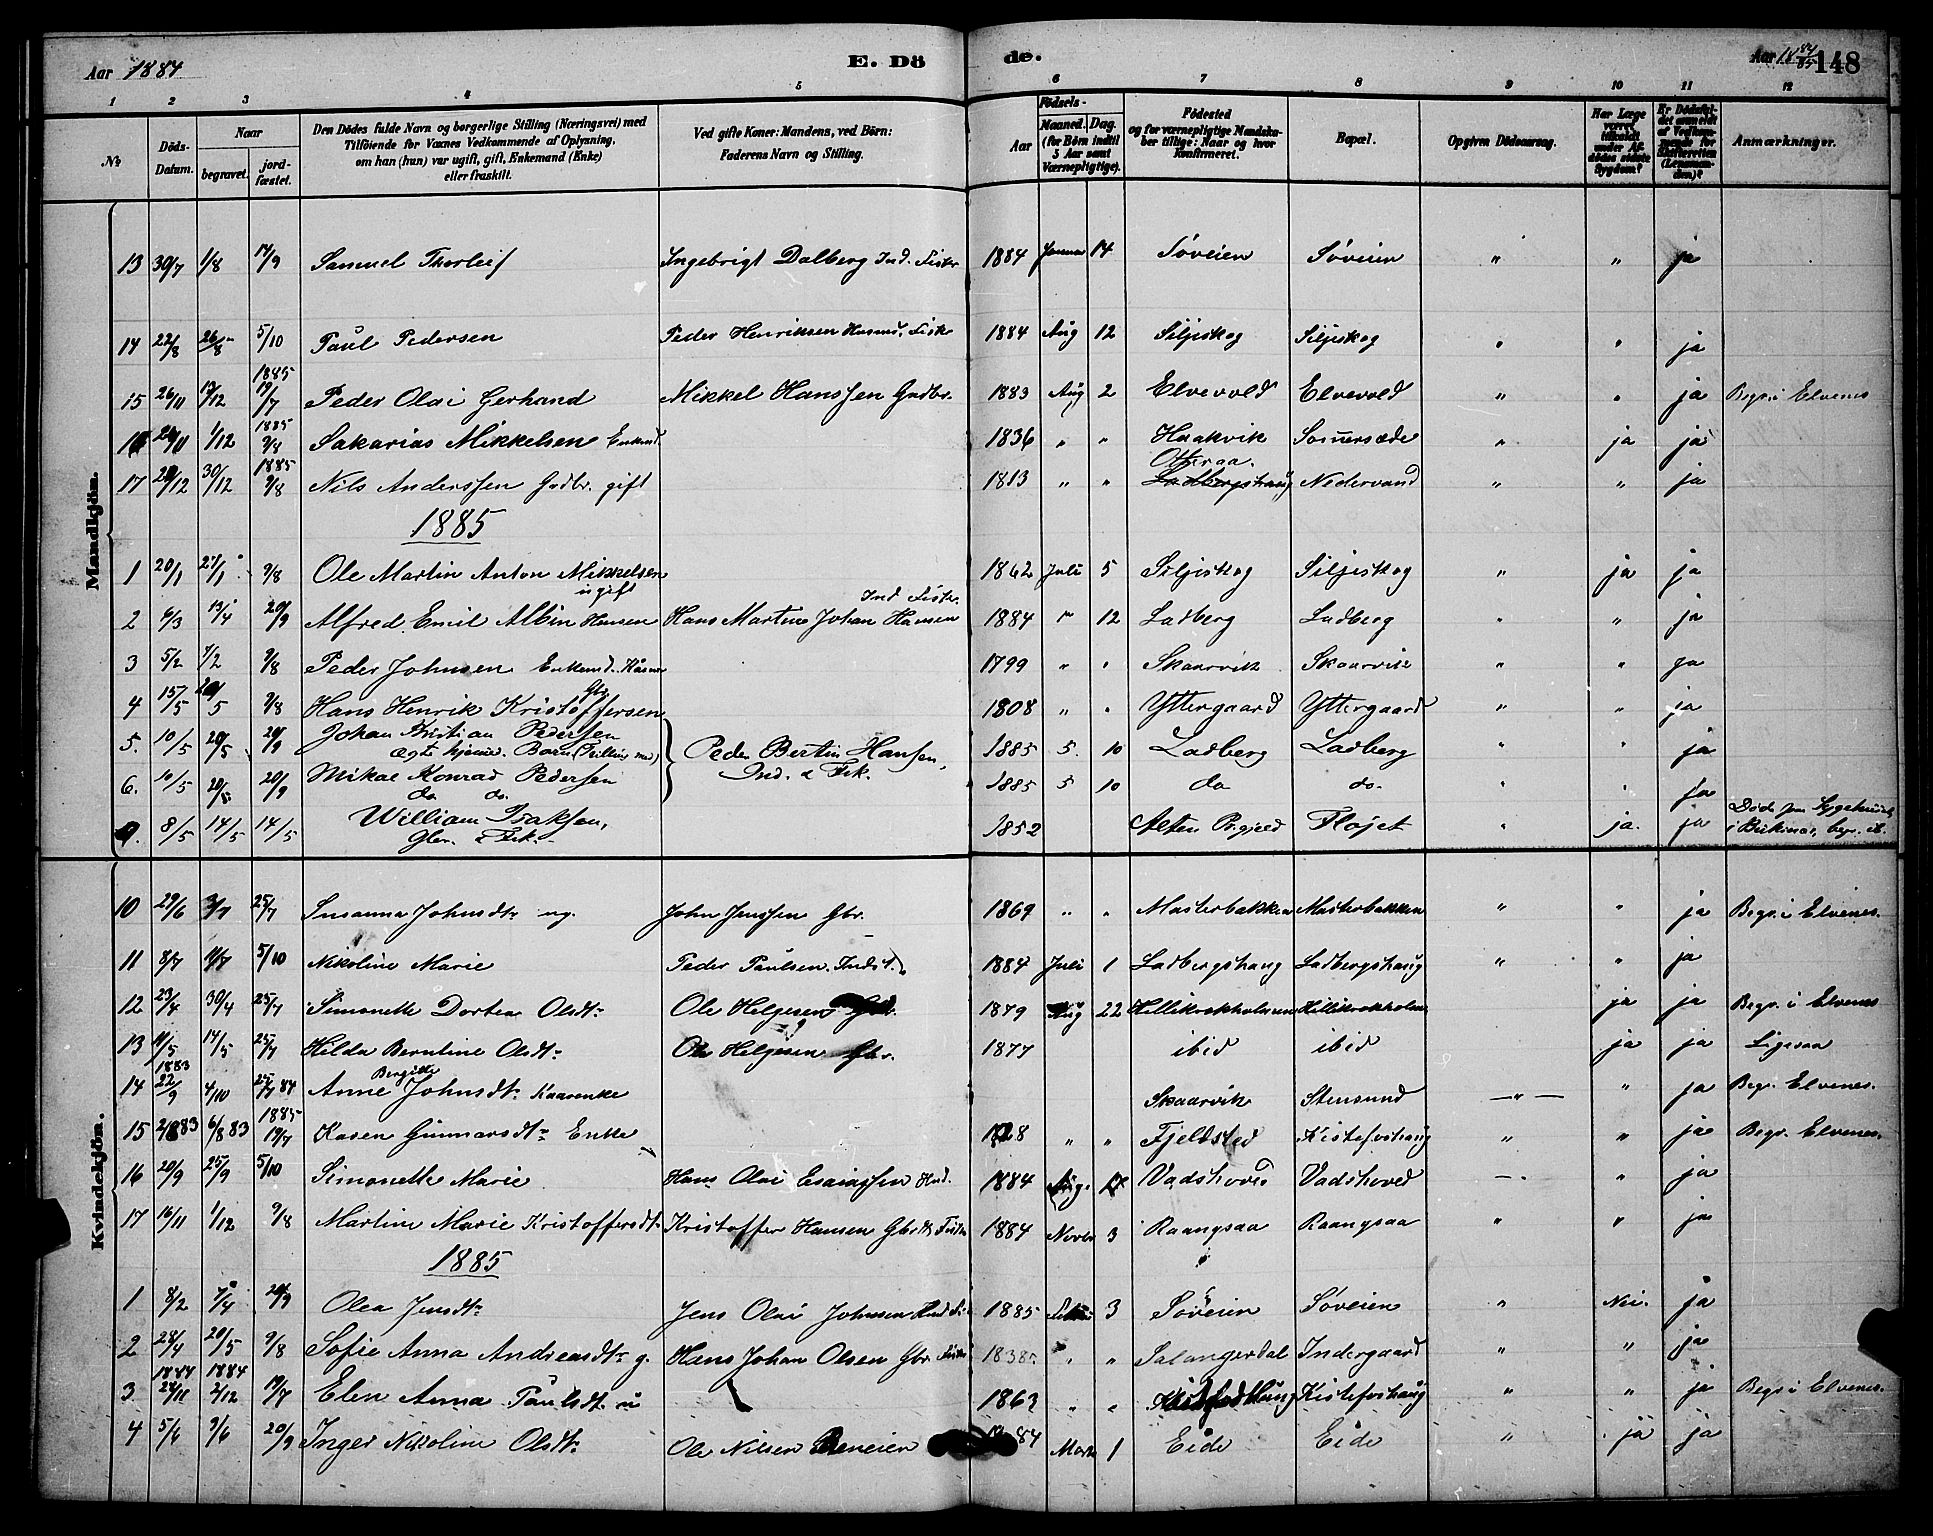 Aar 1884 E. Dö de. Aar 1884/85 148
1 2 3 4 5 6 7 8 9 10 11 12
No. Döds-Datum. Naar begravet. jord-fæstet. Den Dödes fulde Navn og borgerlige Stilling (Næringsvei) med Tilföiende for Voxnes Vedkommende af Oplysning, om han (hun) var ugift, gift, Enkemand (Enke) eller fraskilt. Ved gifte Koner: Mandens, ved Börn: Faderens Navn og Stilling. Födsels- Aar Maaned. Dag. (for Börn indtil 5 Aar samt Værnepligtige). Födested og for værnepligtige Mandskaber tillige: Naar og hvor Konfirmeret. Bopæl. Opgiven Dödsaarsag. Har Læge været tilkaldt under Afdödes sidste Sygdom? Er Dödsfaldet anmeldt af Vedkommende for Skifteretten (Lensmanden)? Anmærkninger.
Mandkjön.
13 30/7 1/8 14/9 Samuel Thorleif Ingebrigt Dalberg Ind. Fisker 1884 Januar 14 Söveien Söveien " " ja
14 22/8 26/8 5/10 Paul Pedersen Peder Henriksen Husmd. Fisk 1884 Aug 12 Siljeskog Siljeskog " " ja
15 26/11 13/12 1885 19/7 Peder Olai Gerhand Mikkel Hanssen Gadbr. 1883 Aug 2 Elvevold Elvevold " " ja Begr. i Elvenes
16 /11 1/12 1885 9/8 Sakarias Mikkelsen Enkmd. 1836 " " Haakvik Somersæde " ja ja
17 /12 30/12 1885 9/8 Nils Anderssen Gadbr. gift 1813 " " Otteraa. Ladbergshaug Nedervand " " ja
1885
1 20/1 27/1 9/8 Ole Martin Anton Mikkelsen ugift 1862 Juli 5 Siljeskog Siljeskog " ja ja
2 6/3 13/4 20/9 Alfred Emil Albin Hansen Hans Martin Johan Hansen Ind. Fisker. 1884 " 12 Ladberg Ladberg " " ja
3 5/2 7/2 9/8 Peder Johnsen Enkemd. 1799 " " Skaarvik Skaarvik " " ja
4 15/5 20/5 9/8 Hans Henrik Kristoffersen Gbr. 1808 " " Yttergaard Yttergaard " " ja
5. 10/5 20/5 20/9 Johan Kristian Pedersen ægte hjemed. Barn (Trilling med) Peder Bertin Hansen, Ind. & Fisk. 1885 5. 10 Ladberg Ladberg " " ja
6. 10/5 20/5 20/9 Mikal Konrad Pedersen do do. 1885 5 10 do do. " " ja
8/5 14/5 14/5 William Isaksen, Gbr. & Fisk. 1852 Alten Prgjeld Flöjet " ja. ja Död paa Sygehuset
Kvindekjön.
10 29/6 3/7 25/7 Susanna Johnsdtr. ug. John Jenssen Gbr. 1869 " " Masterbakken Masterbakken " " ja Begr. i Elvenes.
11 8/7 11/7 5/10 Nikoline Marie Peder Paulsen. Indst. 1884 Juli 1 Ladbergshaug Ladbergshaug " " ja
12 23/4 30/4 25/7 Simonette Dortea Olsdtr. Ole Helgesen Gbr. 1879 Aug 22 Hillikrokholmen Hillikrokholm ja ja Begr. i Elvenes
13 11/5 14/5 25/7 Hilda Berntine Olsdtr. Ole Helgesen Gbr. 1877 ibid ibid ja ja Ligesaa
14 1883 22/9 4/10 25/7 84 Anne Bergitte Johnsdtr. Kaarenke Skaarvik Stensund — " — " ja Begr. Elvenes.
15 83 6/8 83 1885 19/7 Karen Gunnarsdtr. Enke " " Fjeldsted Kistefoshaug " " ja Begr. Elvenes.
16 20/9 25/9 5/10 Simonette Marie Hans Olai Esaiassen Ind. 1884 Aug. Vadshoved Vadshoved " ja
17 16/11 1/12 9/8 Martine Marie Kristoffersdtr. Kristoffer Hansen Gbr. Fisker 1884 Novbr 3 Raangsaa Raangsaa " " ja
1885
1 8/2 7/4 20/9 Olea Jensdtr. Jens Olai Johnsen 1885 3 Söveien Söveien " Nei. ja
2 28/4 20/5 9/8 Sofie Anna Andreasdtr. g. Hans Johan Olsen Gbr. Fisker 1838 " " Salangerdal Indergaard " " ja
3 1884 24/11 1884 2/12 19/7 Elen Anna Paulsdtr. u 1863 " " Kistefoshaug " " ja Begr. i Elvenes.
4 5/6 9/6 20/9 Inger Nikoline Olsdtr. Ole Nilsen 84 Marts 1 Eide Eide " ja ja